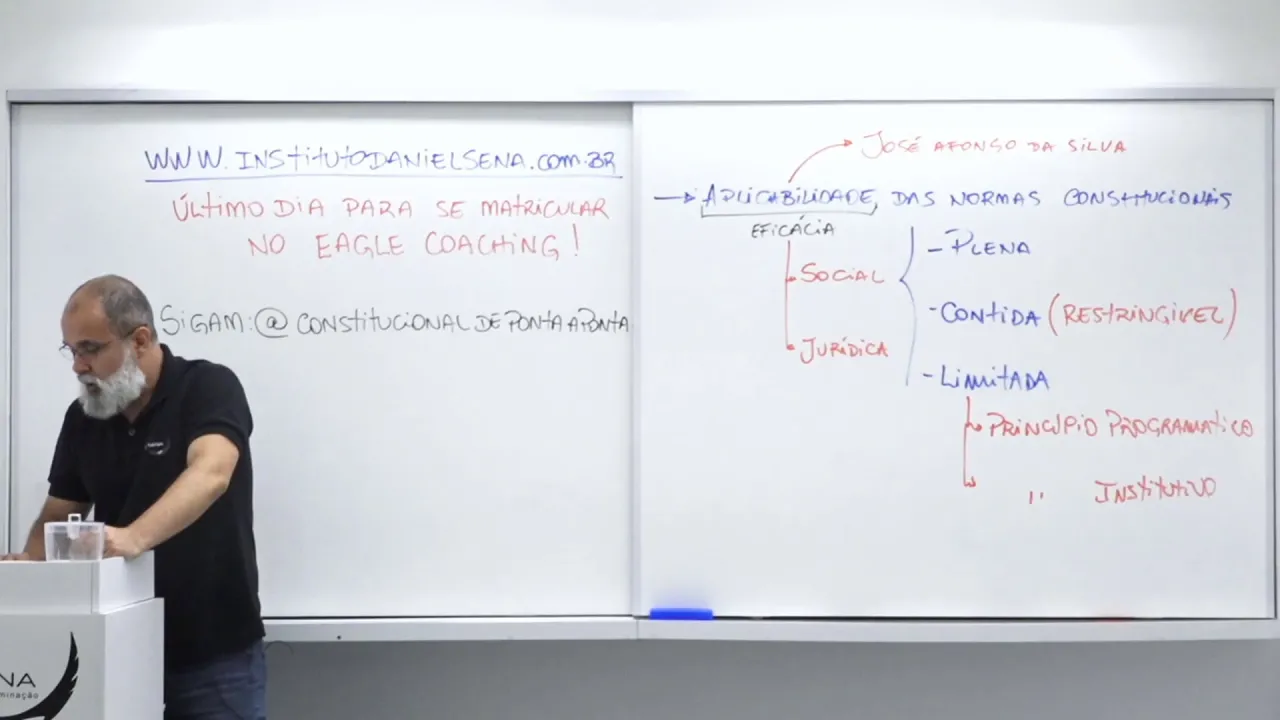 WWW.INSTITUTODANIELSENA.COM.BR
ÚLTIMO DIA PARA SE MATRICULAR
NO EAGLE COACHING!
SIGAM: @CONSTITUCIONALDEPONTAAPONTA
JOSÉ AFONSO DA SILVA
APLICABILIDADE DAS NORMAS CONSTITUCIONAIS
EFICÁCIA
SOCIAL
JURÍDICA
- PLENA
- CONTIDA (RESTRINGÍVEL)
- LIMITADA
PRINCÍPIO PROGRAMÁTICO
" INSTITUTIVO
NA
minação